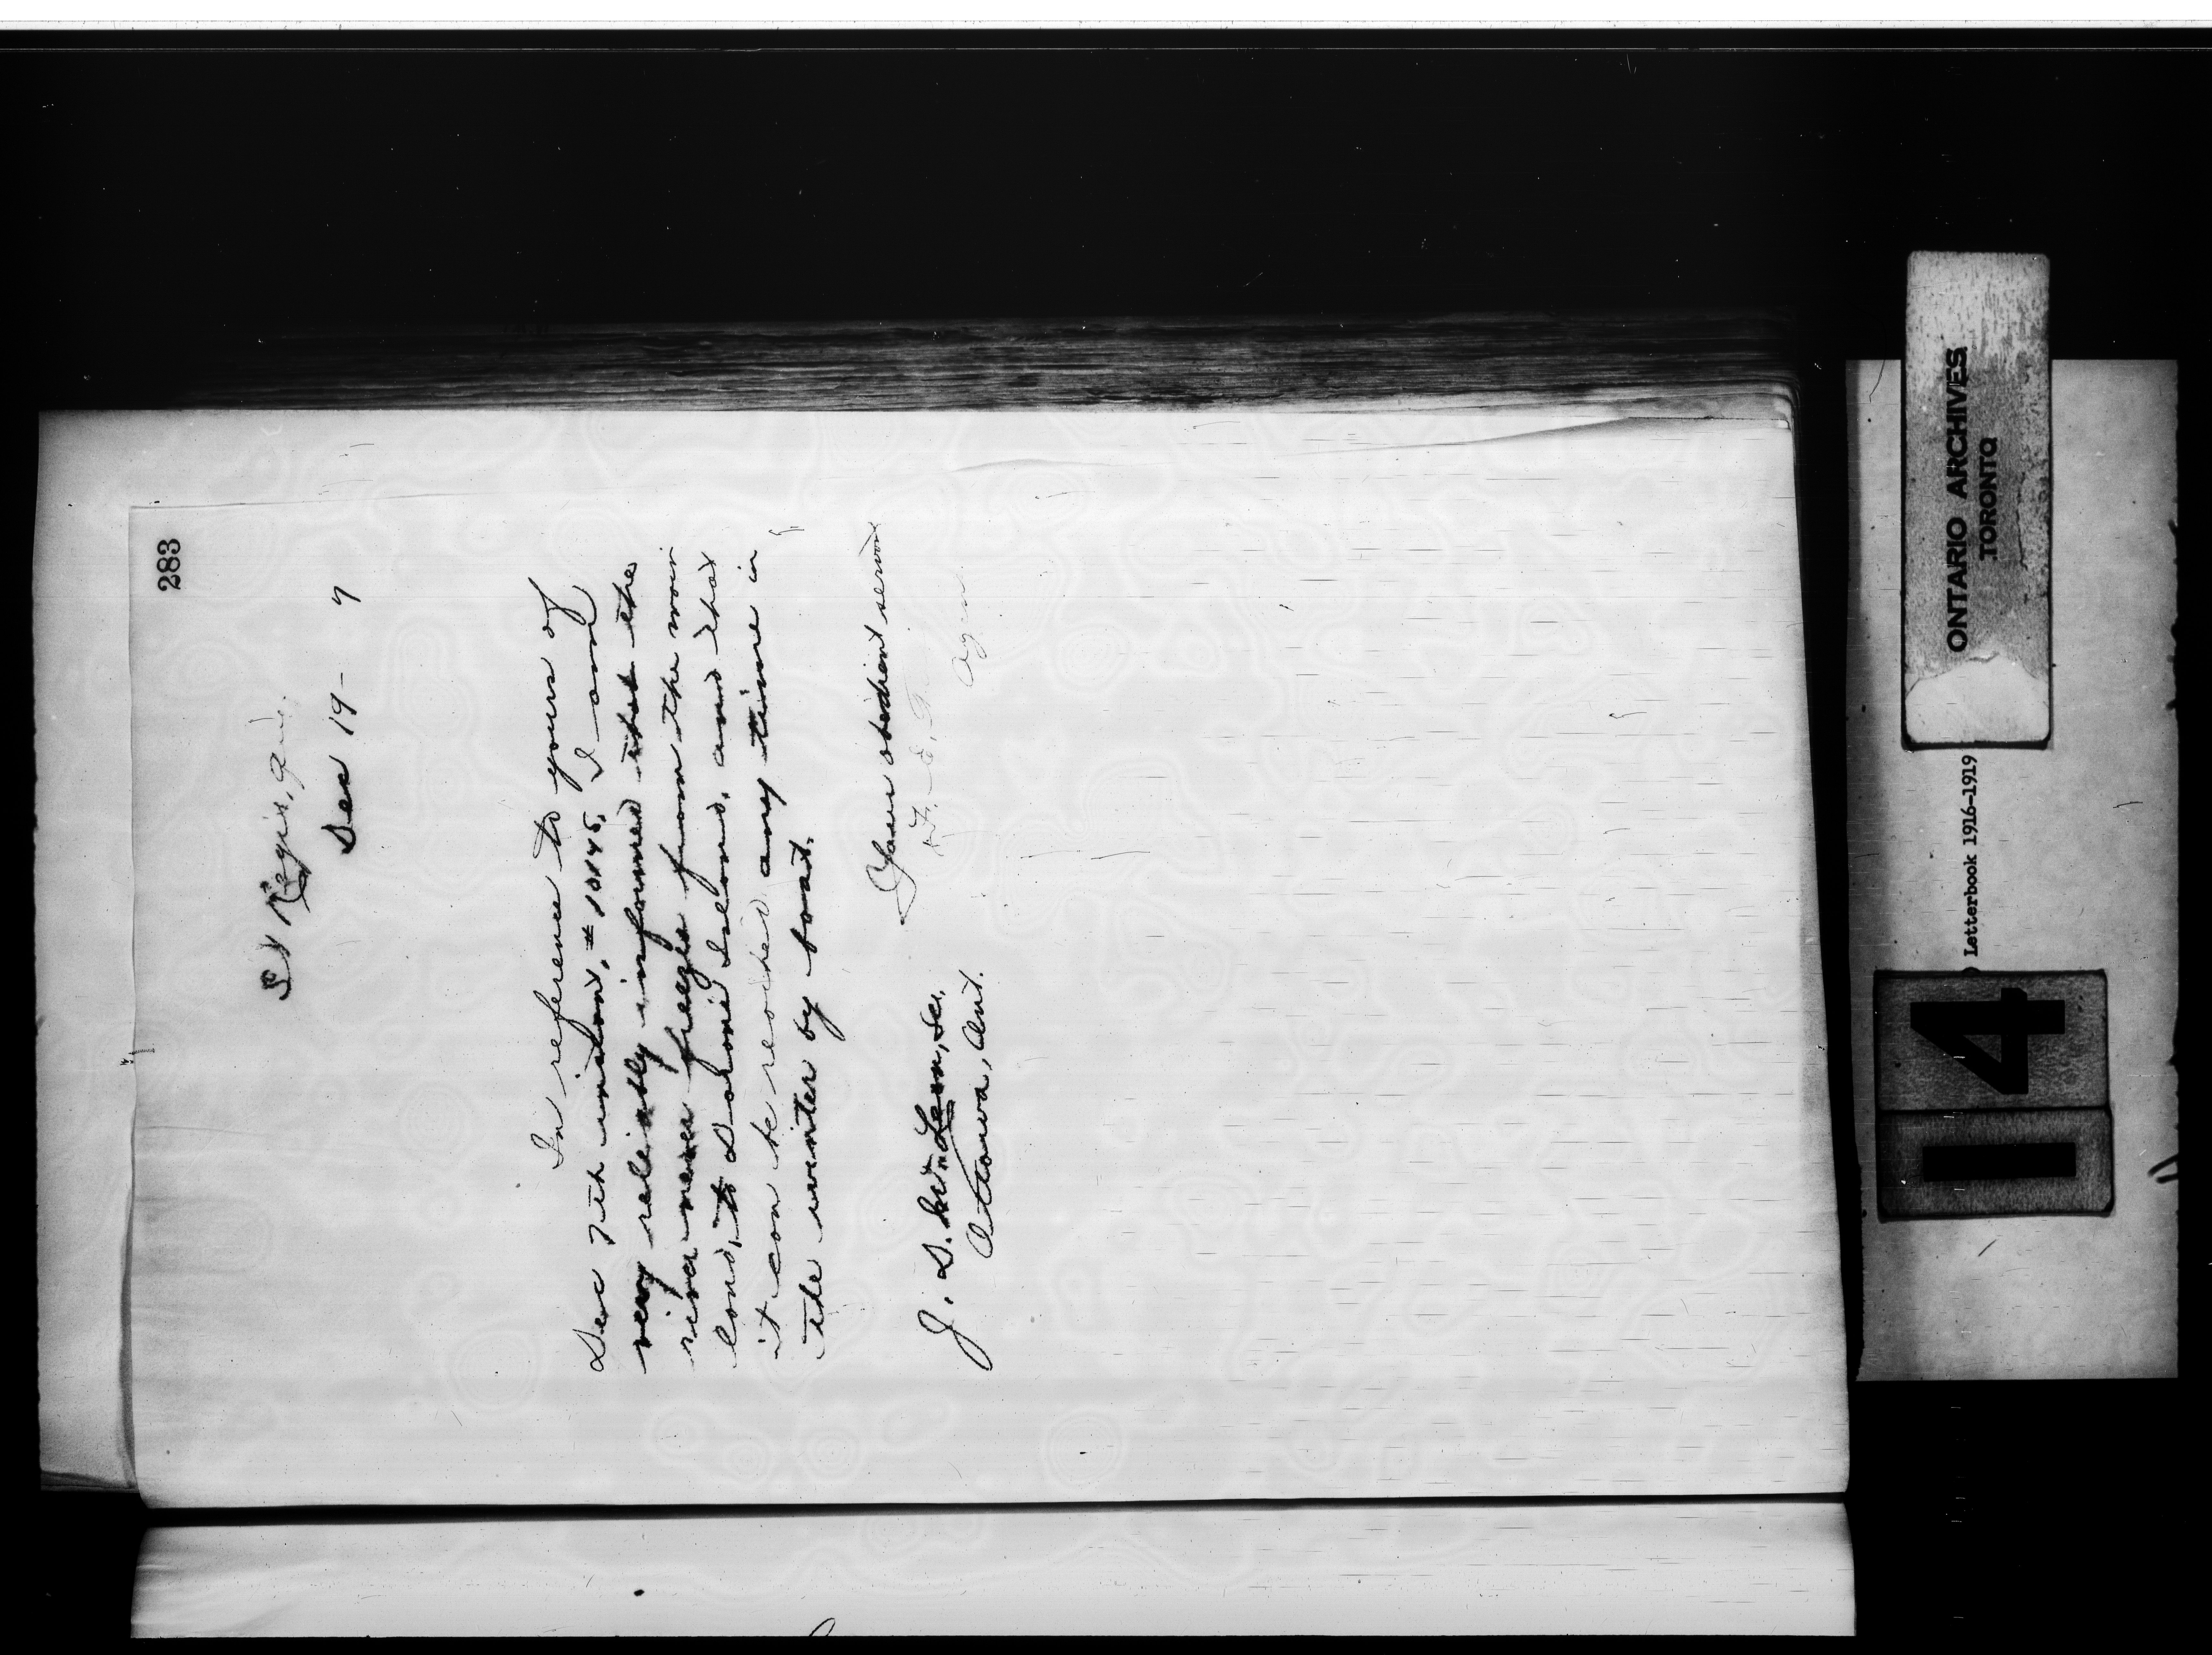 283
St Regis, Que.
Dec 19- 7
In reference to yours of
Dec 7th instant, # 10145, I am
very reliably informed that the
river never freezes from the main
land, to Dahoni Island, and that
it can be reached any time in
the winter by boat.
Your obedient servan
F. E. T
Agen
J. D. McLean, Sec.
Ottawa, Ont.
ONTARIO ARCHIVES
TORONTO
Letterbook 1916-1919
14